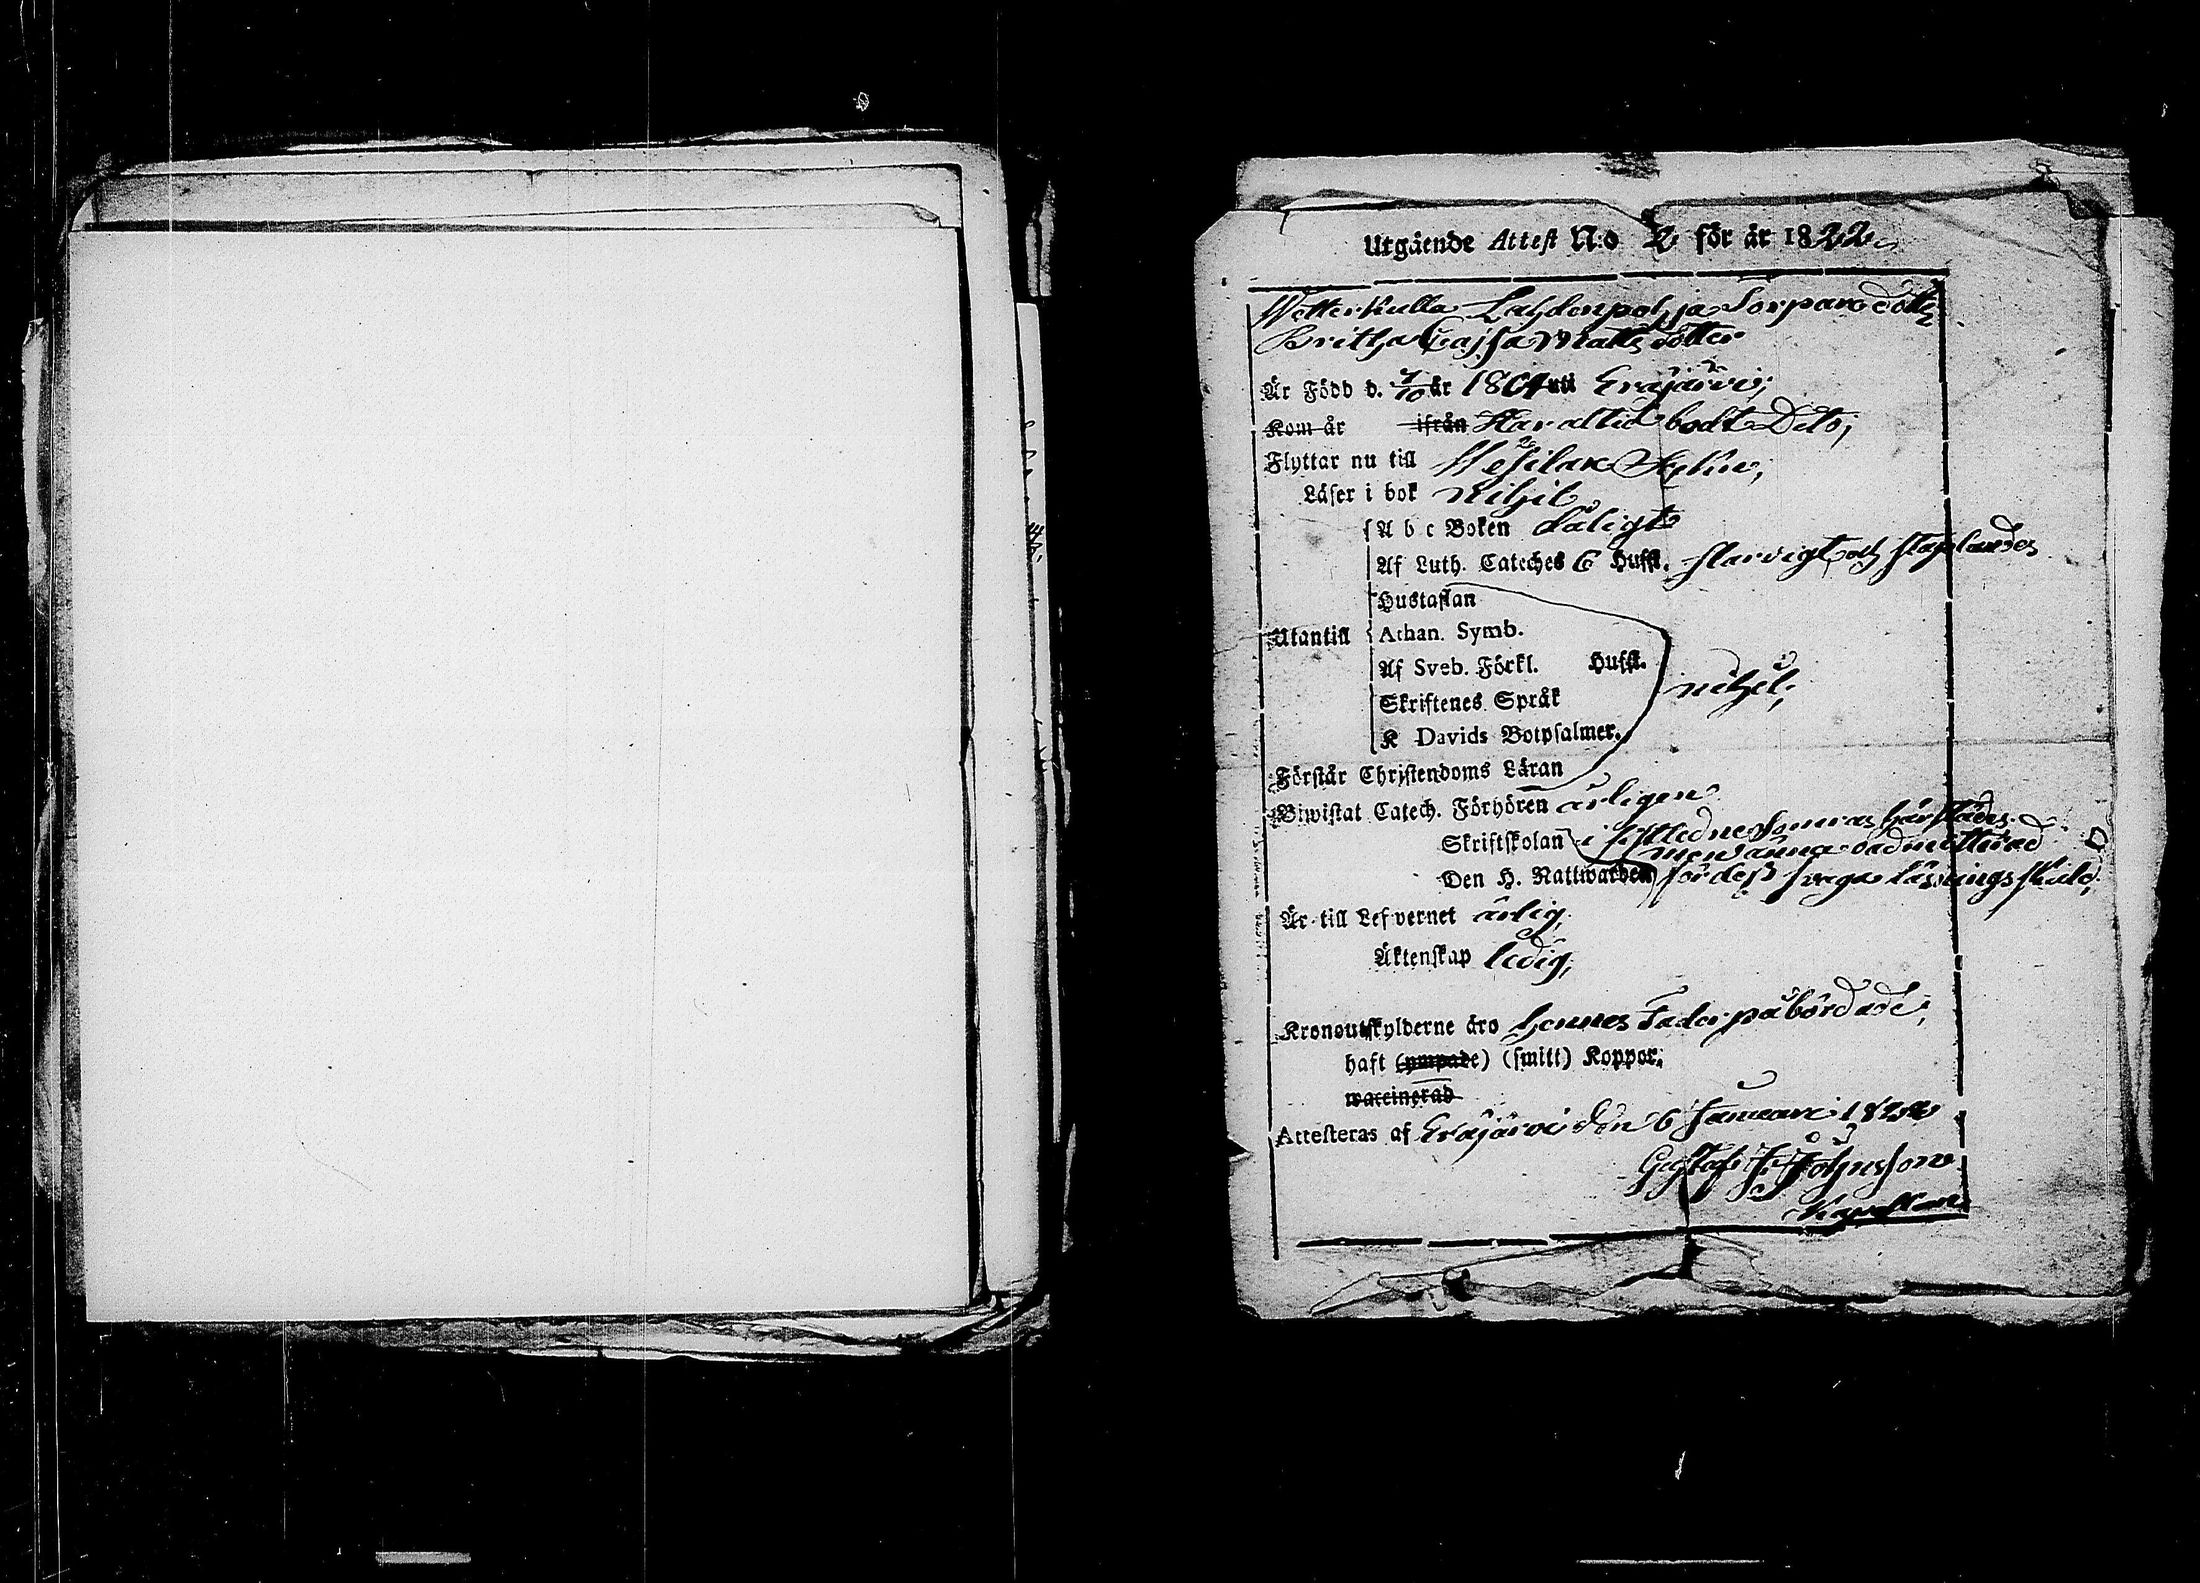 Utgående Attest N:o 2 för år 1822.
Wetterkulla Lahdenpohja Torpare dotter
Britha Cajsa Matts dotter
Är Född d. 7/10 år 1804 uti Eräjärvi;
Kom år ifrån Har altid bodt Dito,
Flyttar nu till Wesilax Sockn,
Läser i bok nihil
A b c Boken dåligt
Af Luth. Cateches 6 Hufst. slarvigt och staplandes
Hustaflan
Utantill Athan. Symb.
Af Sveb. Förkl. Hufst.
nihil,
Skriftenes Språk
K Davids Botpsalmer.
Förstår Christendoms Läran
Biwistat Catech. Förhören årligen
Skriftskolan i sistledne sommar härstädes
men ännu oadmitterad
Den H. Nattwarden för dess svaga läsnings skuld,
Är till Lefvernet ärlig,
Äktenskap ledig,
Kronoutskylderne äro hennes Fader påbördade,
haft (ympade) (smitt) Koppor,
waccinerad
Attesteras af Eräjärvi den 6 Januari 1822
Gustaf Johnsson
Kapellan